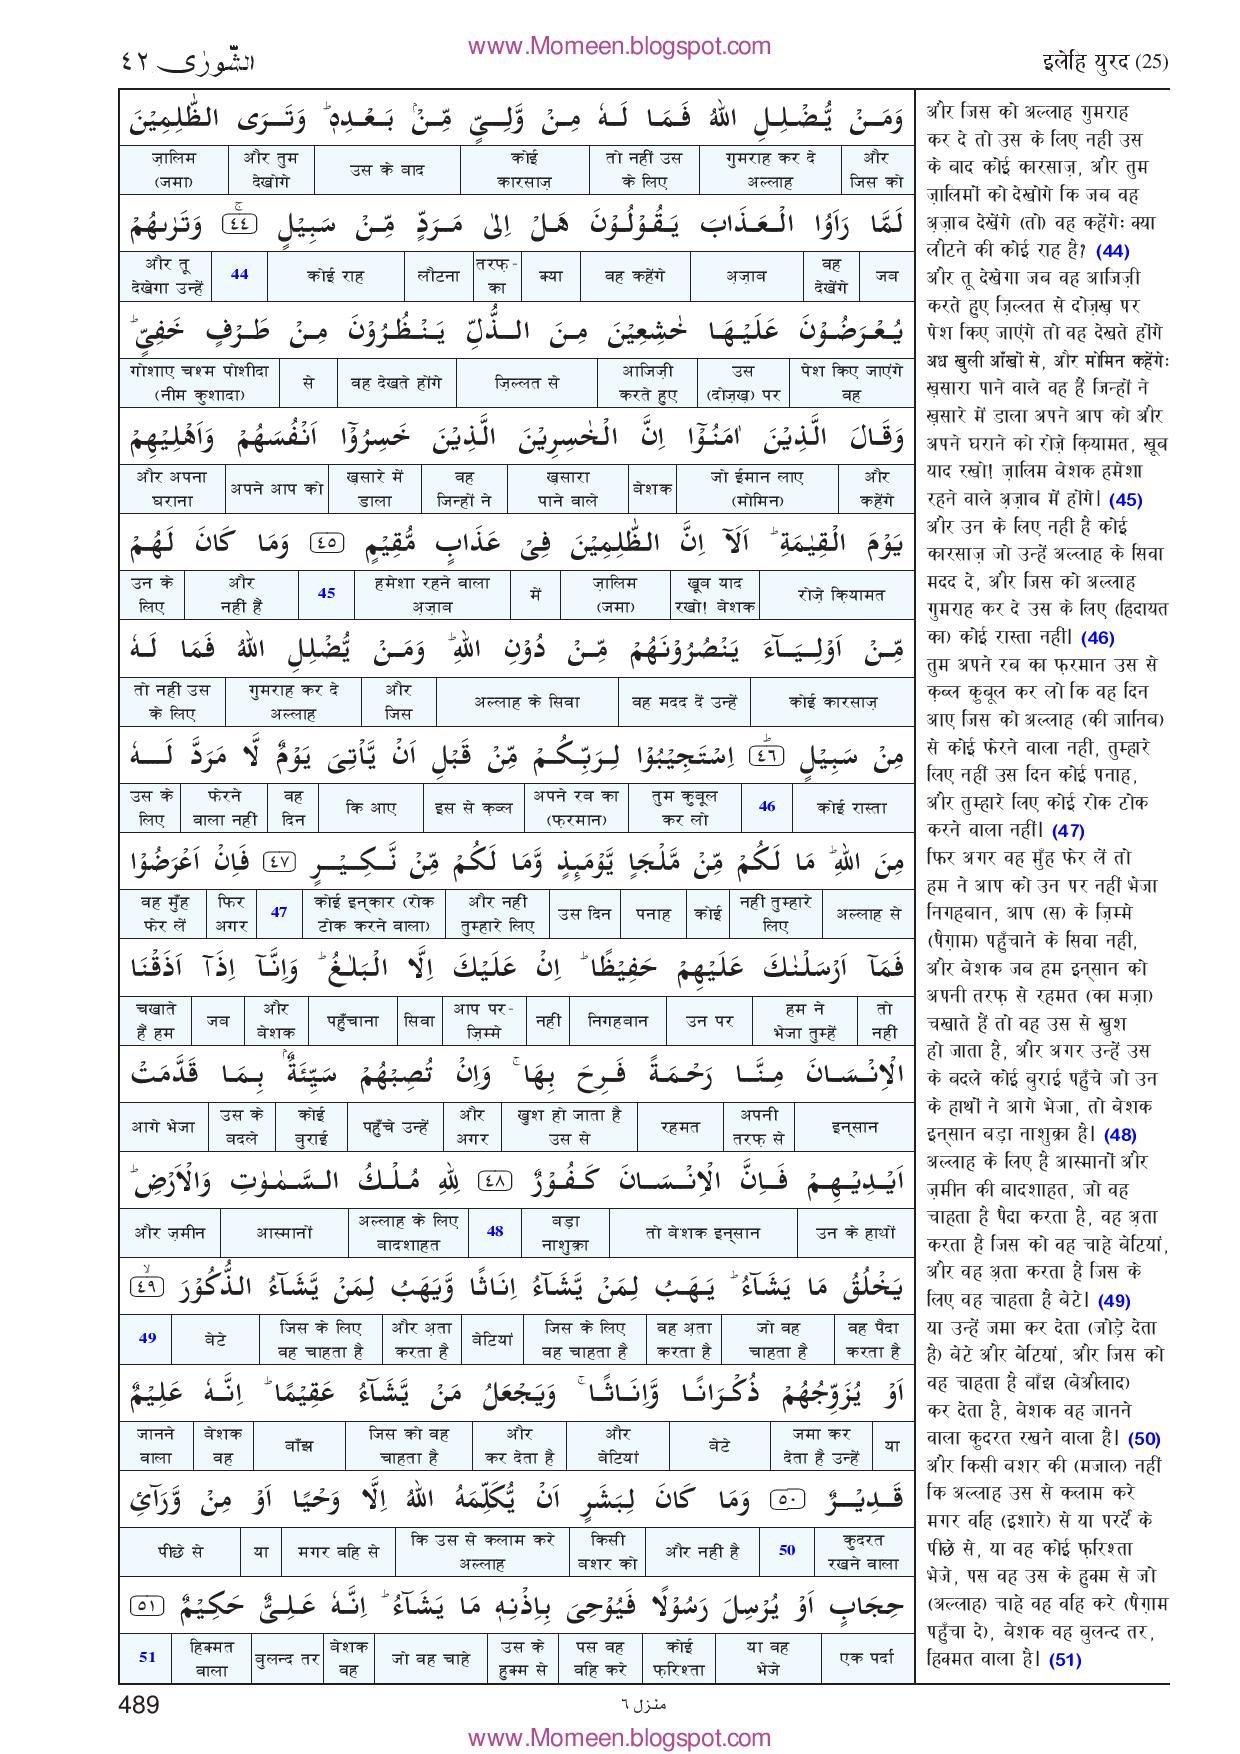 www.Momeen.blogspot.com
الشّورٰی ٤٢
इलेहि युरद (25)
وَمَنْ يُّضْلِلِ اللّٰهُ فَمَا لَهٗ مِنْ وَّلِيٍّ مِّنْۢ بَعْدِهٖ ؕ وَتَرَى الظّٰلِمِيْنَ
और जिस को | गुमराह कर दे अल्लाह | तो नहीं उस के लिए | कोई कारसाज़ | उस के बाद | और तुम देखोगे | ज़ालिम (जमा)
لَمَّا رَاَوُا الْعَذَابَ يَقُوْلُوْنَ هَلْ اِلٰى مَرَدٍّ مِّنْ سَبِيْلٍ ۚ ٤٤ وَتَرٰىهُمْ
जब | वह देखेंगे | अज़ाब | वह कहेंगे | क्या | तरफ़-का | लौटना | कोई राह | 44 | और तू देखेगा उन्हें
يُعْرَضُوْنَ عَلَيْهَا خٰشِعِيْنَ مِنَ الذُّلِّ يَنْظُرُوْنَ مِنْ طَرْفٍ خَفِيٍّ ؕ
पेश किए जाएंगे वह | उस (दोज़ख़) पर | आजिज़ी करते हुए | ज़िल्लत से | वह देखते होंगे | से | गोशाए चश्म पोशीदा (नीम कुशादा)
وَقَالَ الَّذِيْنَ اٰمَنُوْٓا اِنَّ الْخٰسِرِيْنَ الَّذِيْنَ خَسِرُوْٓا اَنْفُسَهُمْ وَاَهْلِيْهِمْ
और कहेंगे | जो ईमान लाए (मोमिन) | बेशक | ख़सारा पाने वाले | वह जिन्हों ने | ख़सारे में डाला | अपने आप को | और अपना घराना
يَوْمَ الْقِيٰمَةِ ؕ اَلَآ اِنَّ الظّٰلِمِيْنَ فِيْ عَذَابٍ مُّقِيْمٍ ٤٥ وَمَا كَانَ لَهُمْ
रोज़े क़ियामत | खूब याद रखो! बेशक | ज़ालिम (जमा) | में | हमेशा रहने वाला अज़ाब | 45 | और नहीं हैं | उन के लिए
مِّنْ اَوْلِيَآءَ يَنْصُرُوْنَهُمْ مِّنْ دُوْنِ اللّٰهِ ؕ وَمَنْ يُّضْلِلِ اللّٰهُ فَمَا لَهٗ
कोई कारसाज़ | वह मदद दें उन्हें | अल्लाह के सिवा | और जिस | गुमराह कर दे अल्लाह | तो नहीं उस के लिए
مِنْ سَبِيْلٍ ؕ ٤٦ اِسْتَجِيْبُوْا لِرَبِّكُمْ مِّنْ قَبْلِ اَنْ يَّاْتِيَ يَوْمٌ لَّا مَرَدَّ لَهٗ
कोई रास्ता | 46 | तुम कुबूल कर लो | अपने रब का (फ़रमान) | इस से क़ब्ल | कि आए | वह दिन | फेरने वाला नहीं | उस के लिए
مِنَ اللّٰهِ ؕ مَا لَكُمْ مِّنْ مَّلْجَاٍ يَّوْمَىِٕذٍ وَّمَا لَكُمْ مِّنْ نَّكِيْرٍ ٤٧ فَاِنْ اَعْرَضُوْا
अल्लाह से | नहीं तुम्हारे लिए | कोई | पनाह | उस दिन | और नहीं तुम्हारे लिए | कोई इन्कार (रोक टोक करने वाला) | 47 | फिर अगर | वह मुँह फेर लें
فَمَآ اَرْسَلْنٰكَ عَلَيْهِمْ حَفِيْظًا ؕ اِنْ عَلَيْكَ اِلَّا الْبَلٰغُ ؕ وَاِنَّآ اِذَآ اَذَقْنَا
तो नहीं | हम ने भेजा तुम्हें | उन पर | निगहबान | नहीं | आप पर-ज़िम्मे | सिवा | पहुँचाना | और बेशक | जब | चखाते हैं हम
الْاِنْسَانَ مِنَّا رَحْمَةً فَرِحَ بِهَا ۚ وَاِنْ تُصِبْهُمْ سَيِّئَةٌۢ بِمَا قَدَّمَتْ
इन्सान | अपनी तरफ़ से | रहमत | खुश हो जाता है उस से | और अगर | पहुँचे उन्हें | कोई बुराई | उस के बदले | आगे भेजा
اَيْدِيْهِمْ فَاِنَّ الْاِنْسَانَ كَفُوْرٌ ٤٨ لِلّٰهِ مُلْكُ السَّمٰوٰتِ وَالْاَرْضِ ؕ
उन के हाथों | तो बेशक इन्सान | बड़ा नाशुक्रा | 48 | अल्लाह के लिए बादशाहत | आस्मानों | और ज़मीन
يَخْلُقُ مَا يَشَآءُ ؕ يَهَبُ لِمَنْ يَّشَآءُ اِنَاثًا وَّيَهَبُ لِمَنْ يَّشَآءُ الذُّكُوْرَ ۙ ٤٩
वह पैदा करता है | जो वह चाहता है | वह अता करता है | जिस के लिए वह चाहता है | बेटियां | और अता करता है | जिस के लिए वह चाहता है | बेटे | 49
اَوْ يُزَوِّجُهُمْ ذُكْرَانًا وَّاِنَاثًا ۚ وَيَجْعَلُ مَنْ يَّشَآءُ عَقِيْمًا ؕ اِنَّهٗ عَلِيْمٌ
या | जमा कर देता है उन्हें | बेटे | और बेटियां | और कर देता है | जिस को वह चाहता है | बाँझ | बेशक वह | जानने वाला
قَدِيْرٌ ٥٠ وَمَا كَانَ لِبَشَرٍ اَنْ يُّكَلِّمَهُ اللّٰهُ اِلَّا وَحْيًا اَوْ مِنْ وَّرَآئِ
कुदरत रखने वाला | 50 | और नहीं है | किसी बशर को | कि उस से कलाम करे अल्लाह | मगर वहि से | या | पीछे से
حِجَابٍ اَوْ يُرْسِلَ رَسُوْلًا فَيُوْحِيَ بِاِذْنِهٖ مَا يَشَآءُ ؕ اِنَّهٗ عَلِيٌّ حَكِيْمٌ ٥١
एक पर्दा | या वह भेजे | कोई फ़रिश्ता | पस वह वहि करे | उस के हुक्म से | जो वह चाहे | बेशक वह | बुलन्द तर | हिक्मत वाला | 51
और जिस को अल्लाह गुमराह
कर दे तो उस के लिए नहीं उस
के बाद कोई कारसाज़, और तुम
ज़ालिमों को देखोगे कि जब वह
अज़ाब देखेंगे (तो) वह कहेंगेः क्या
लौटने की कोई राह है? (44)
और तू देखेगा जब वह आजिज़ी
करते हुए ज़िल्लत से दोज़ख़ पर
पेश किए जाएंगे तो वह देखते होंगे
अध खुली आँखों से, और मोमिन कहेंगेः
ख़सारा पाने वाले वह हैं जिन्हों ने
ख़सारे में डाला अपने आप को और
अपने घराने को रोज़े क़ियामत, खूब
याद रखो! ज़ालिम बेशक हमेशा
रहने वाले अज़ाब में होंगे। (45)
और उन के लिए नहीं है कोई
कारसाज़ जो उन्हें अल्लाह के सिवा
मदद दे, और जिस को अल्लाह
गुमराह कर दे उस के लिए (हिदायत
का) कोई रास्ता नहीं। (46)
तुम अपने रब का फ़रमान उस से
क़ब्ल कुबूल कर लो कि वह दिन
आए जिस को अल्लाह (की जानिब)
से कोई फेरने वाला नहीं, तुम्हारे
लिए नहीं उस दिन कोई पनाह,
और तुम्हारे लिए कोई रोक टोक
करने वाला नहीं। (47)
फिर अगर वह मुँह फेर लें तो
हम ने आप को उन पर नहीं भेजा
निगहबान, आप (स) के ज़िम्मे
(पैग़ाम) पहुँचाने के सिवा नहीं,
और बेशक जब हम इन्सान को
अपनी तरफ़ से रहमत (का मज़ा)
चखाते हैं तो वह उस से खुश
हो जाता है, और अगर उन्हें उस
के बदले कोई बुराई पहुँचे जो उन
के हाथों ने आगे भेजा, तो बेशक
इन्सान बड़ा नाशुक्रा है। (48)
अल्लाह के लिए है आस्मानों और
ज़मीन की बादशाहत, जो वह
चाहता है पैदा करता है, वह अता
करता है जिस को वह चाहे बेटियां,
और वह अता करता है जिस के
लिए वह चाहता है बेटे। (49)
या उन्हें जमा कर देता (जोड़े देता
है) बेटे और बेटियां, और जिस को
वह चाहता है बाँझ (बेऔलाद)
कर देता है, बेशक वह जानने
वाला कुदरत रखने वाला है। (50)
और किसी बशर की (मजाल) नहीं
कि अल्लाह उस से कलाम करे
मगर वहि (इशारे) से या परदें के
पीछे से, या वह कोई फ़रिश्ता
भेजे, पस वह उस के हुक्म से जो
(अल्लाह) चाहे वह वहि करे (पैग़ाम
पहुँचा दे), बेशक वह बुलन्द तर,
हिक्मत वाला है। (51)
489
منزل ٦
www.Momeen.blogspot.com